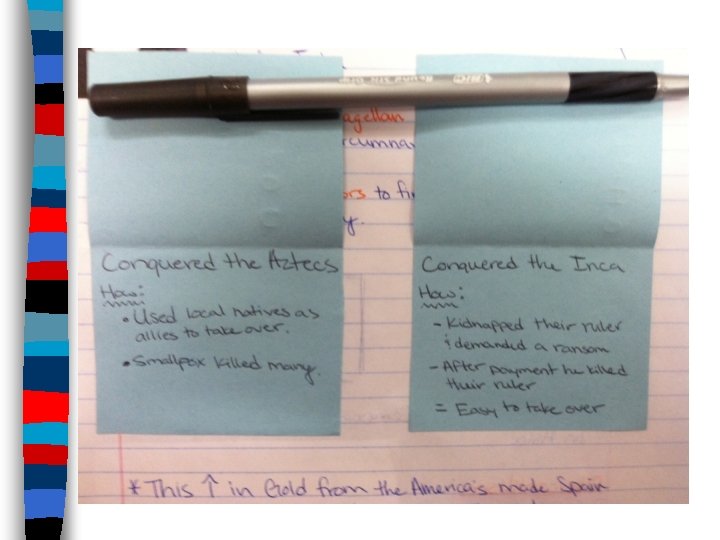 agellan
cumna
ors to fi
y.
Conquered the Aztecs
How:
• Used local natives as
allies to take over.
• Smallpox killed many.
Conquered the Inca
How:
- Kidnapped their ruler
& demanded a ransom
- After payment he killed
their ruler
= Easy to take over
* This ↑ in Gold from the America's made Spain